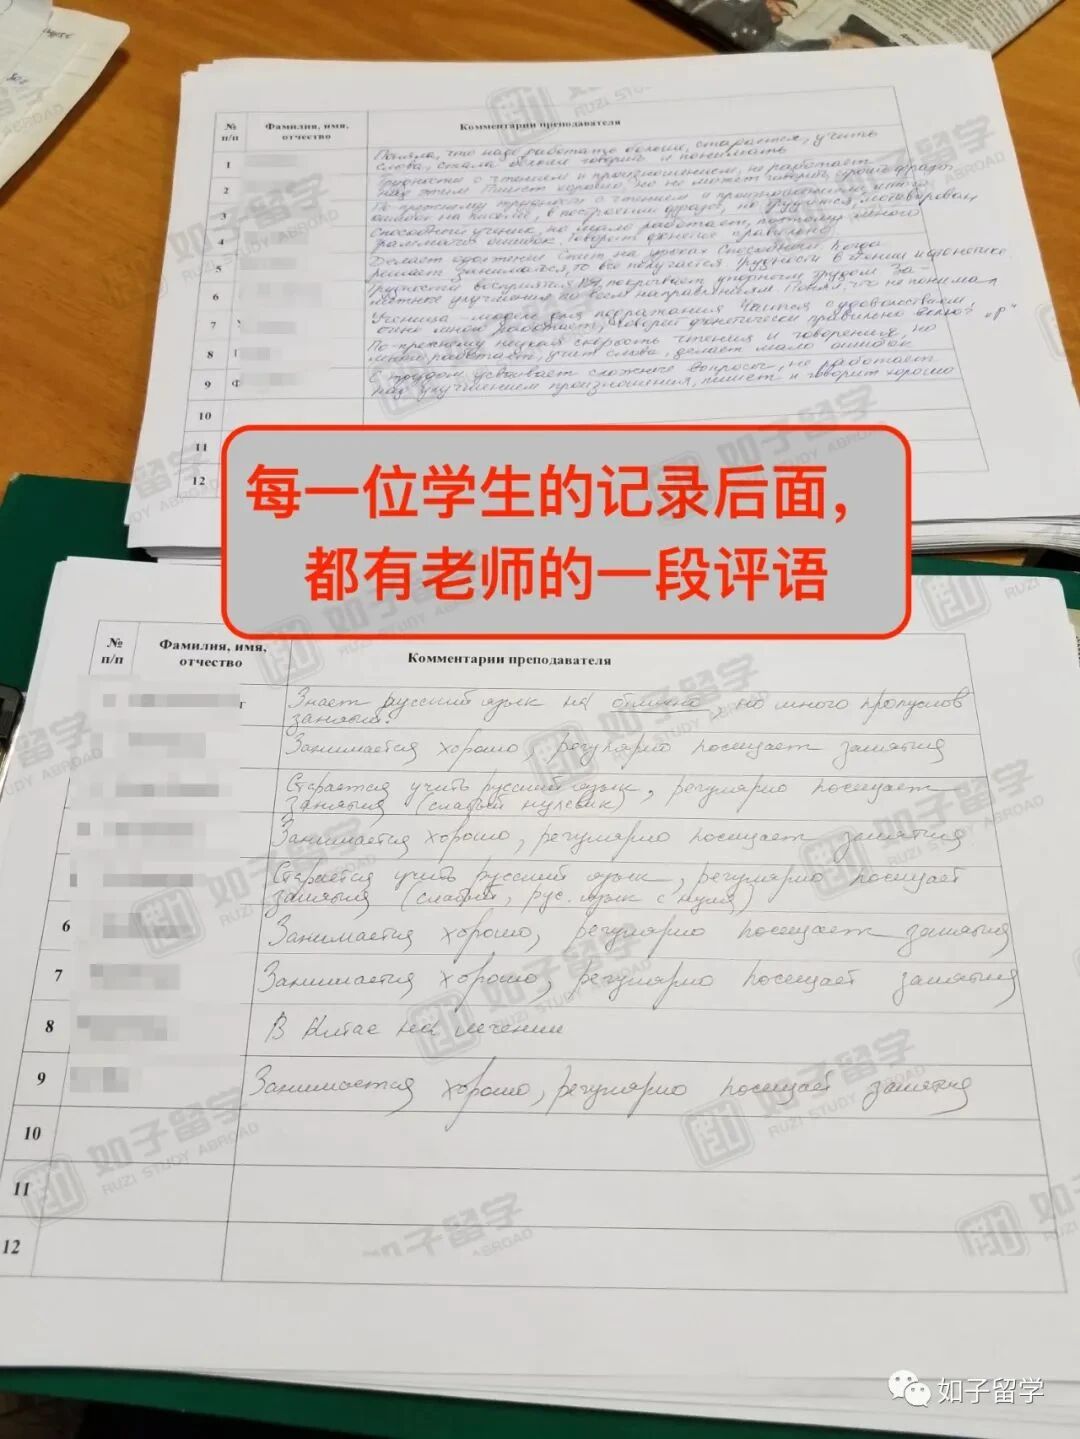 № п/п
Фамилия, имя, отчество
Комментарии преподавателя
1
Поняла, что надо работать больше, старается, учить
слова, стала больше говорить и понимать
2
Трудности с чтением и произношением, не работает
над этим. Пишет хорошо, но не может говорить
3
По-прежнему трудности с чтением и произношением,
ошибок на письме, в построении фраз, но трудится, мотивирован
4
Способный ученик, но мало работает, поэтому много
грамматич. ошибок. Говорит
5
Делает одолжение. Спит на уроках. Способный. Когда
решает заниматься, то все получается. Трудности в чтении и фонетике.
6
Трудности восприятия упорным трудом. За-
метные улучшения по всем направлениям.
7
Ученица - модель для подражания. Учится с удовольствием,
очень много работает, говорит фонетически правильно „р“
8
По-прежнему низкая скорость чтения и говорения, но
много работает, учит слова, делает мало ошибок
9
С трудом усваивает сложные вопросы, не работает
над улучшением произношения, пишет и говорит хорошо
10
11
12
每一位学生的记录后面，
都有老师的一段评语
№ п/п
Фамилия, имя, отчество
Комментарии преподавателя
Знает русский язык на отлично но много пропусков
занятий.
Занимается хорошо, регулярно посещает занятия
Старается учить русский язык, регулярно посещает
занятия (слабый нулевик)
Занимается хорошо, регулярно посещает занятия
Старается учить русский язык, регулярно посещает
занятия (слабый, рус. язык с нуля)
6
Занимается хорошо, регулярно посещает занятия
7
Занимается хорошо, регулярно посещает занятия
8
В Китае на лечении
9
Занимается хорошо, регулярно посещает занятия
10
11
12
如子留学
RUZI STUDY ABROAD
如子留学